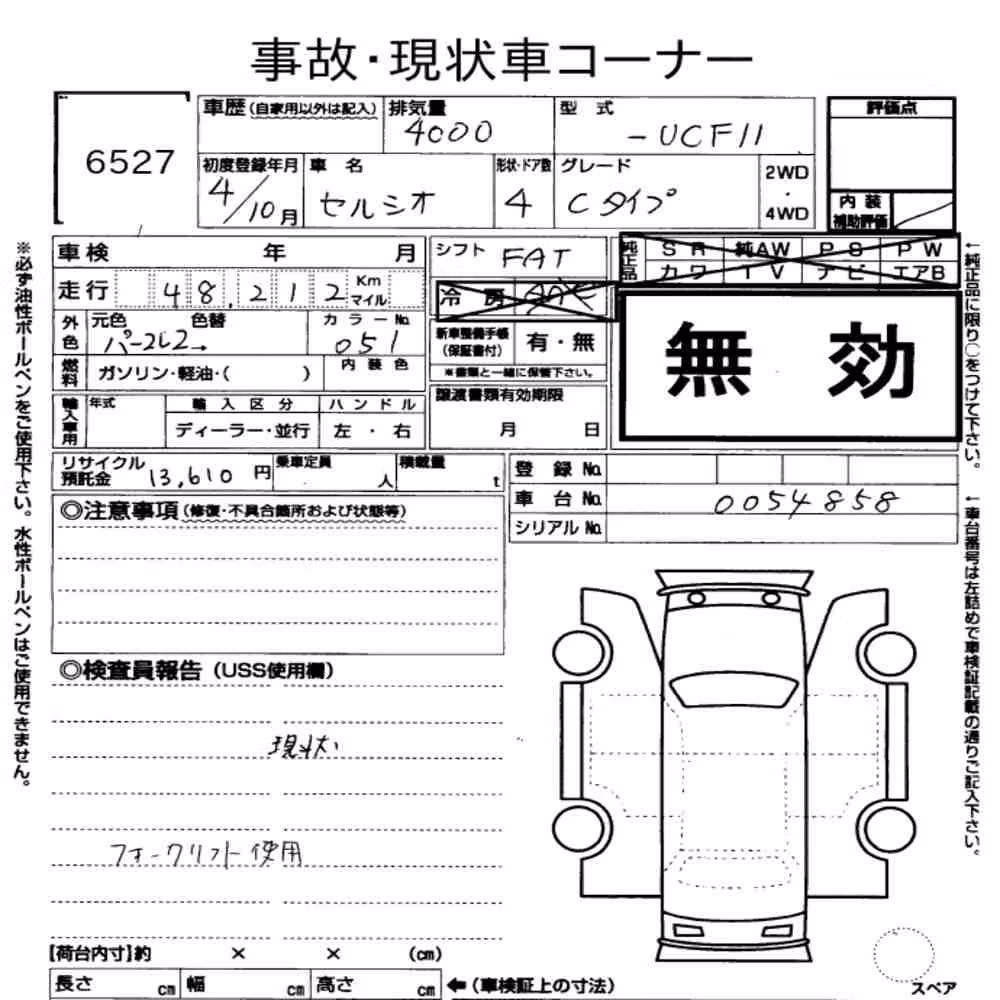 事故・現状車コーナー
6527
車歴(自家用以外は記入)
排気量
4000
型式
-UCF11
評価点
初度登録年月
4/10月
車名
セルシオ
形状・ドア数
4
グレード
Cタイプ
2WD
・
4WD
内装
補助評価
車検 年 月
シフト
FAT
純正品
SR 純AW PS PW
カワ TV ナビ エアB
走行 48,212 Km
マイル
冷房 AAC
無効
外色
元色 色替
パール2→
カラーNo.
051
新車整備手帳
(保証書付)
有・無
※書類と一緒に保管下さい。
燃料
ガソリン・軽油・( )
内装色
輸入車用
年式
輸入区分
ハンドル
ディーラー・並行
左・右
譲渡書類有効期限
月 日
リサイクル
預託金
13,610 円
乗車定員
人
積載量
t
登録No.
車台No. 0054858
シリアルNo.
◎注意事項(修復・不具合箇所および状態等)
◎検査員報告(USS使用欄)
現状
フォークリフト使用
【荷台内寸】約 × × (cm)
長さ cm 幅 cm 高さ cm ←(車検証上の寸法)
スペア
※必ず油性ボールペンをご使用下さい。水性ボールペンはご使用できません。
←純正品に限り○をつけて下さい。
←車台番号は左詰めで車検証記載の通りご記入下さい。